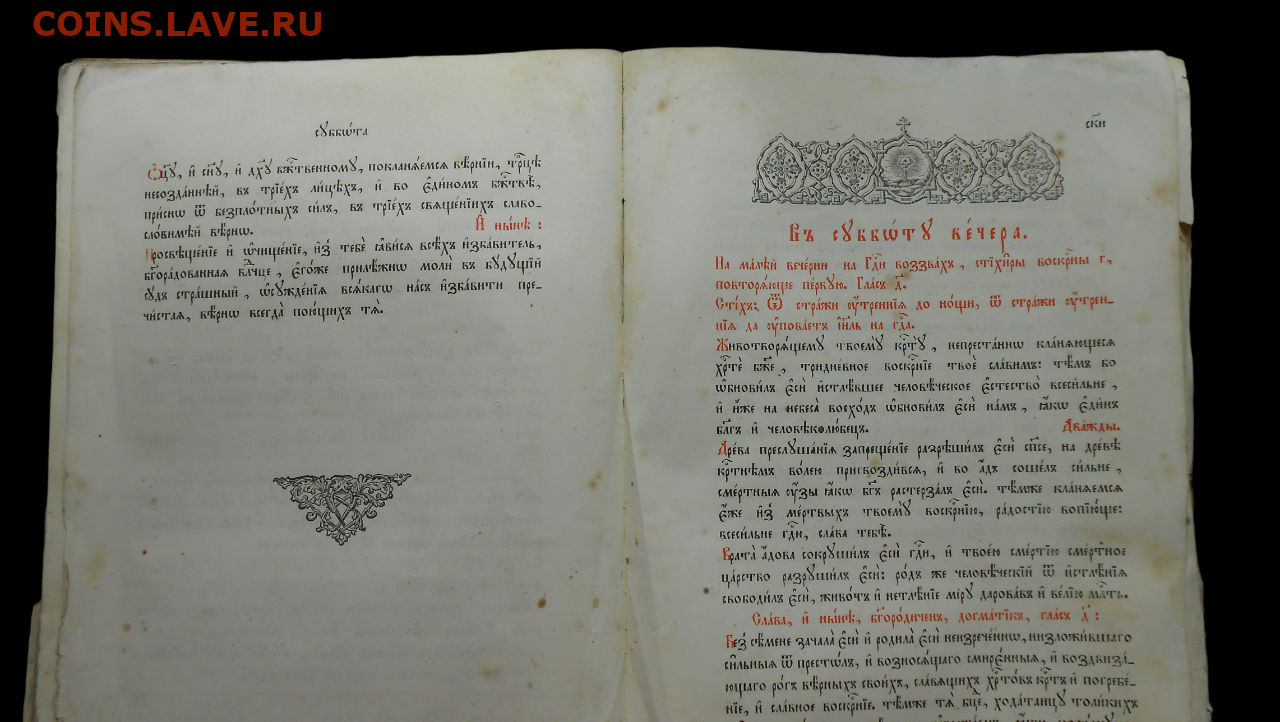 COINS.LAVE.RU
сꙋббѡ́та
Ѻц҃ꙋ̀, и҆ сн҃ꙋ, и҆ дх҃ꙋ бж҃твенномꙋ, покланѧ́емсѧ вѣ́рнїи, трⷪ҇цѣ
несозда́ннѣй, въ трїе́хъ ли́цѣхъ, и҆ во є҆ди́номъ бж҃твѣ̀,
при́снѡ ѿ безпло́тныхъ си́лъ, въ трїе́хъ свѧще́нїихъ славо-
сло́вимѣй вѣ́рнѡ.
И҆ ны́нѣ :
Просвѣще́нїе и҆ ѡ҆чище́нїе, и҆з̾ тебє̀ ꙗ҆ви́сѧ всѣ́хъ и҆зба́витель,
бг҃ора́дованнаѧ влⷣчце, є҆го́же прилѣ́жнѡ молѝ въ бꙋ́дꙋщїй
сꙋ́дъ стра́шный, ѡ҆сꙋжде́нїѧ всѧ́кагѡ на́съ и҆зба́вити пре-
чи́стаѧ, вѣ́рнѡ всегда̀ пою́щихъ тѧ̀.
ски
Въ сꙋббѡ́тꙋ ве́чера.
На ма́лѣй вече́рни на Гдⷭ҇и воззва́хъ, стїхи̑ры воскрⷭ҇ны г҃,
повторѧ́юще пе́рвꙋю. Гла́съ д҃.
Сті́хъ: Ѿ стра́жи ᲂу҆́треннїѧ до но́щи, ѿ стра́жи ᲂу҆́трен-
нїѧ да ᲂу҆пова́етъ і҆и҃ль на гдⷭ҇а.
Животворѧ́щемꙋ твоемꙋ̀ крⷭ҇тꙋ̀, непреста́ннѡ кла́нѧющесѧ
хрⷭ҇тѐ бж҃е, тридне́вное воскрⷭ҇нїе твоѐ сла́вимъ: тѣ́мъ бо
ѡ҆бнови́лъ є҆сѝ и҆стлѣ́вшее человѣ́ческое є҆стество̀ всеси́льне,
и҆ и҆́же на небеса̀ восхо́дъ ѡ҆бнови́лъ є҆сѝ на́мъ, ꙗ҆́кѡ є҆ди́нъ
бл҃гъ и҆ человѣколю́бецъ.
Два́жды.
Дре́ва преслꙋша́нїѧ запреще́нїе разрѣши́лъ є҆сѝ сп҃се, на дре́вѣ
крⷭ҇тнѣмъ во́лею пригвозди́всѧ, и҆ во а҆́дъ соше́лъ си́льне,
сме́ртныѧ ᲂу҆́зы ꙗ҆́кѡ бг҃ъ растерза́лъ є҆сѝ. тѣ́мже кла́нѧемсѧ
є҆́же и҆з̾ ме́ртвыхъ твоемꙋ̀ воскрⷭ҇нїю, ра́достїю вопїю́ще:
всеси́льне гдⷭ҇и, сла́ва тебѣ̀.
Врата̀ а҆́дова сокрꙋши́лъ є҆сѝ гдⷭ҇и, и҆ твое́ю сме́ртїю сме́ртное
ца́рство разрꙋши́лъ є҆сѝ: ро́дъ же человѣ́ческїй ѿ и҆стлѣ́нїѧ
свободи́лъ є҆сѝ, живо́тъ и҆ нетлѣ́нїе мі́рꙋ дарова́въ и҆ ве́лїю млⷭ҇ть.
Сла́ва, и҆ ны́нѣ, бг҃оро́диченъ, догма́тїкъ, гла́съ д҃ :
Без̾ сѣ́мене зачала̀ є҆сѝ и҆ родила̀ є҆сѝ неизрече́ннѡ, низложи́вшаго
си̑льныѧ ѿ престѡ́лъ, и҆ вознос­ѧ́щаго смире̑нныѧ, и҆ воздвиза́-
ющаго ро́гъ вѣ́рныхъ свои́хъ, сла́вѧщихъ хрⷭ҇то́въ крⷭ҇тъ и҆ погребе́-
нїе, и҆ сла́вное воскрⷭ҇нїе. тѣ́мже тѧ̀ бц҃е, хода́таицꙋ толи́кихъ